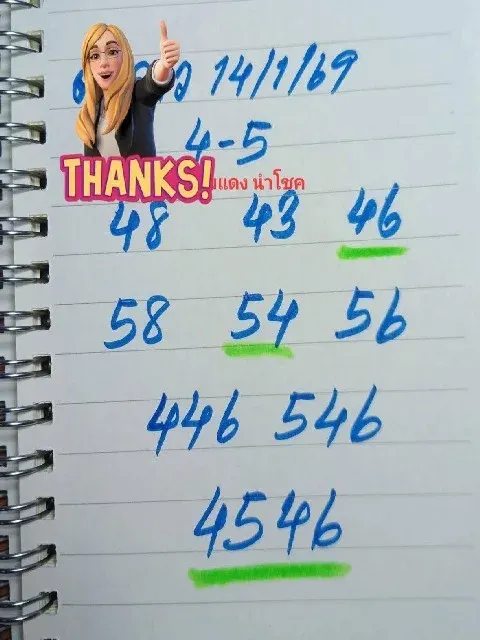 14/1/69
4-5
THANKS!
แดง นำโชค
48 43 46
58 54 56
446 546
4546